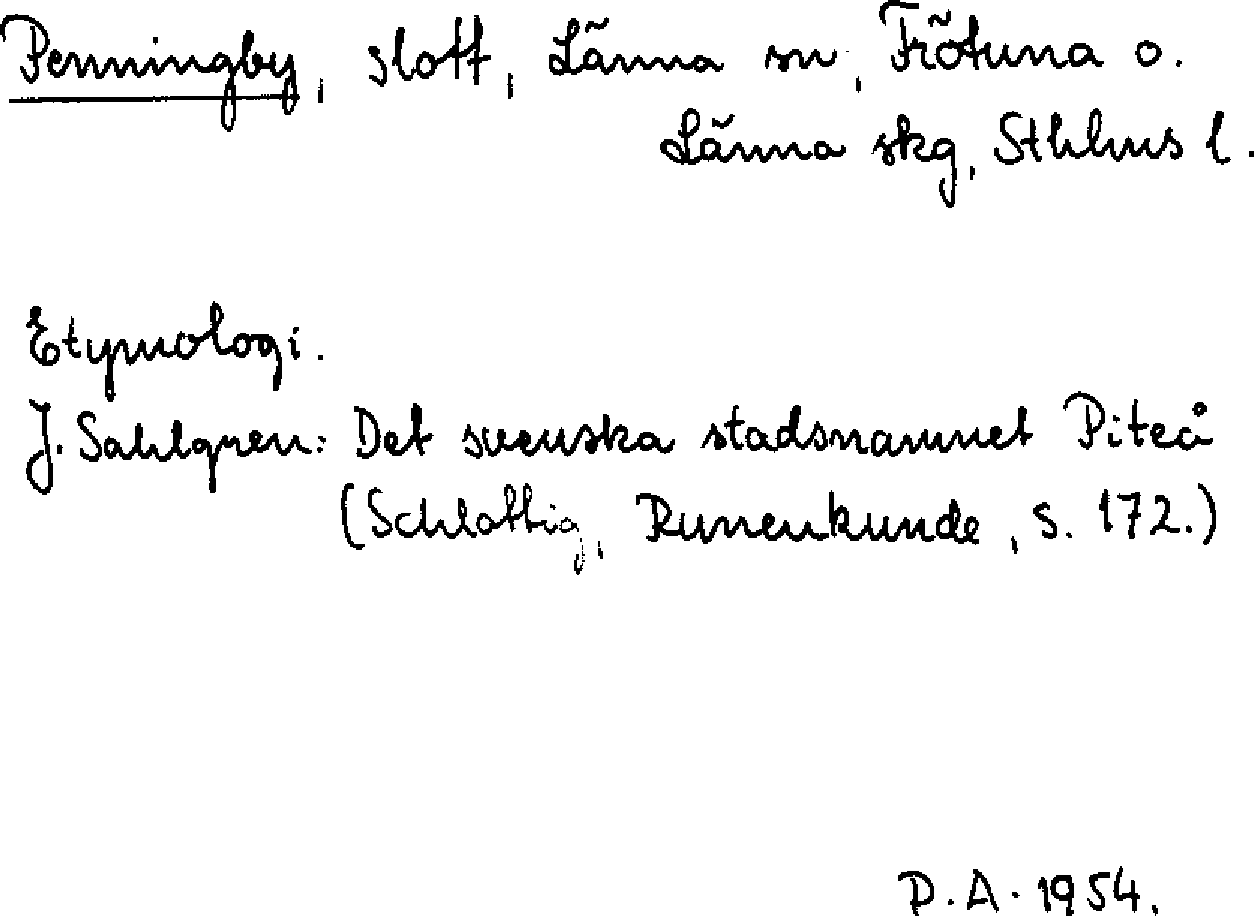 Penningby, slott, Länna sn, Frötuna o.
Länna skg, Sthlms l.
Etymologi.
J. Sahlgren: Det svenska stadsnamnet Piteå
(Schlottig, Runenkunde, s. 172.)
P.A. 1954.